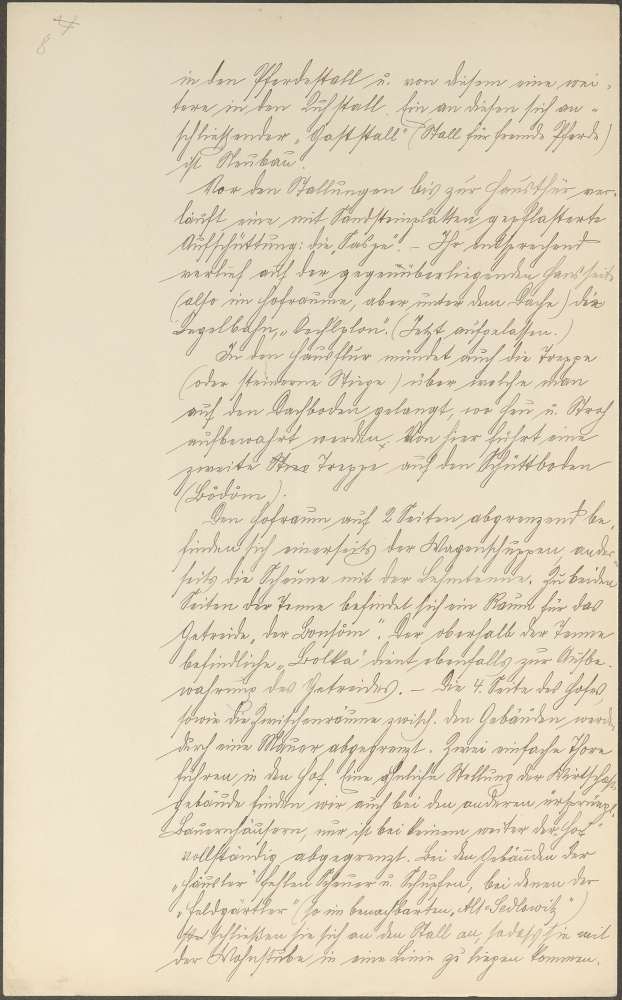 8.
in den Pferdestall u. von diesem eine wei-
tere in den Kuhstall. Ein an diesen sich an-
schließender „Gaststall" (Stall für fremde Pferde)
ist Neubau.
Vor den Stallungen bis zur Hausthür ver-
läuft eine mit Sandsteinplatten gepflasterte
Aufschüttung: die „ ". – Ihr entsprechend
verlief auf der gegenüberliegenden Hausseite
(also im Hofraume, aber unter dem Dache) die
Kegelbahn, „ ". (Jetzt aufgelassen.)
In den Hausflur mündet auch die Treppe
(oder steinerne Stiege) über welche man
auf den Dachboden gelangt, wo Heu u. Stroh
aufbewahrt werden. Von hier führt eine
zweite Treppe auf den Schüttboden
(Bödöm).
Den Hofraum auf 2 Seiten abgrenzend be-
finden sich einerseits der Wagenschuppen, ander-
seits die Scheune mit der Lehmtenne. Zu beiden
Seiten der Tenne befindet sich ein Raum für das
Getreide, der „Bonsöm". Der oberhalb der Tenne
befindliche „Bolka" dient ebenfalls zur Aufbe-
wahrung des Getreides. – Die 4. Seite des Hofes
sowie die Zwischenräume zwisch. den Gebäuden werden
durch eine Mauer abgegrenzt. Zwei einfache Thore
führen in den Hof. Eine ähnliche Stellung der Wirtschafts-
gebäude finden wir auch bei den anderen ursprüngl.
Bauernhäusern, nur ist bei keinem weiter der „Hof"
vollständig abgegrenzt. Bei den Gebäuden der
„Häusler" fehlen Scheuer u. Schupfen, bei denen der
„Feldgärtler" (so im benachbarten „Alt-Sedlowitz")
schließen sie sich an den Stall an, sodass sie mit
der Wohnstube in eine Linie zu liegen kommen.